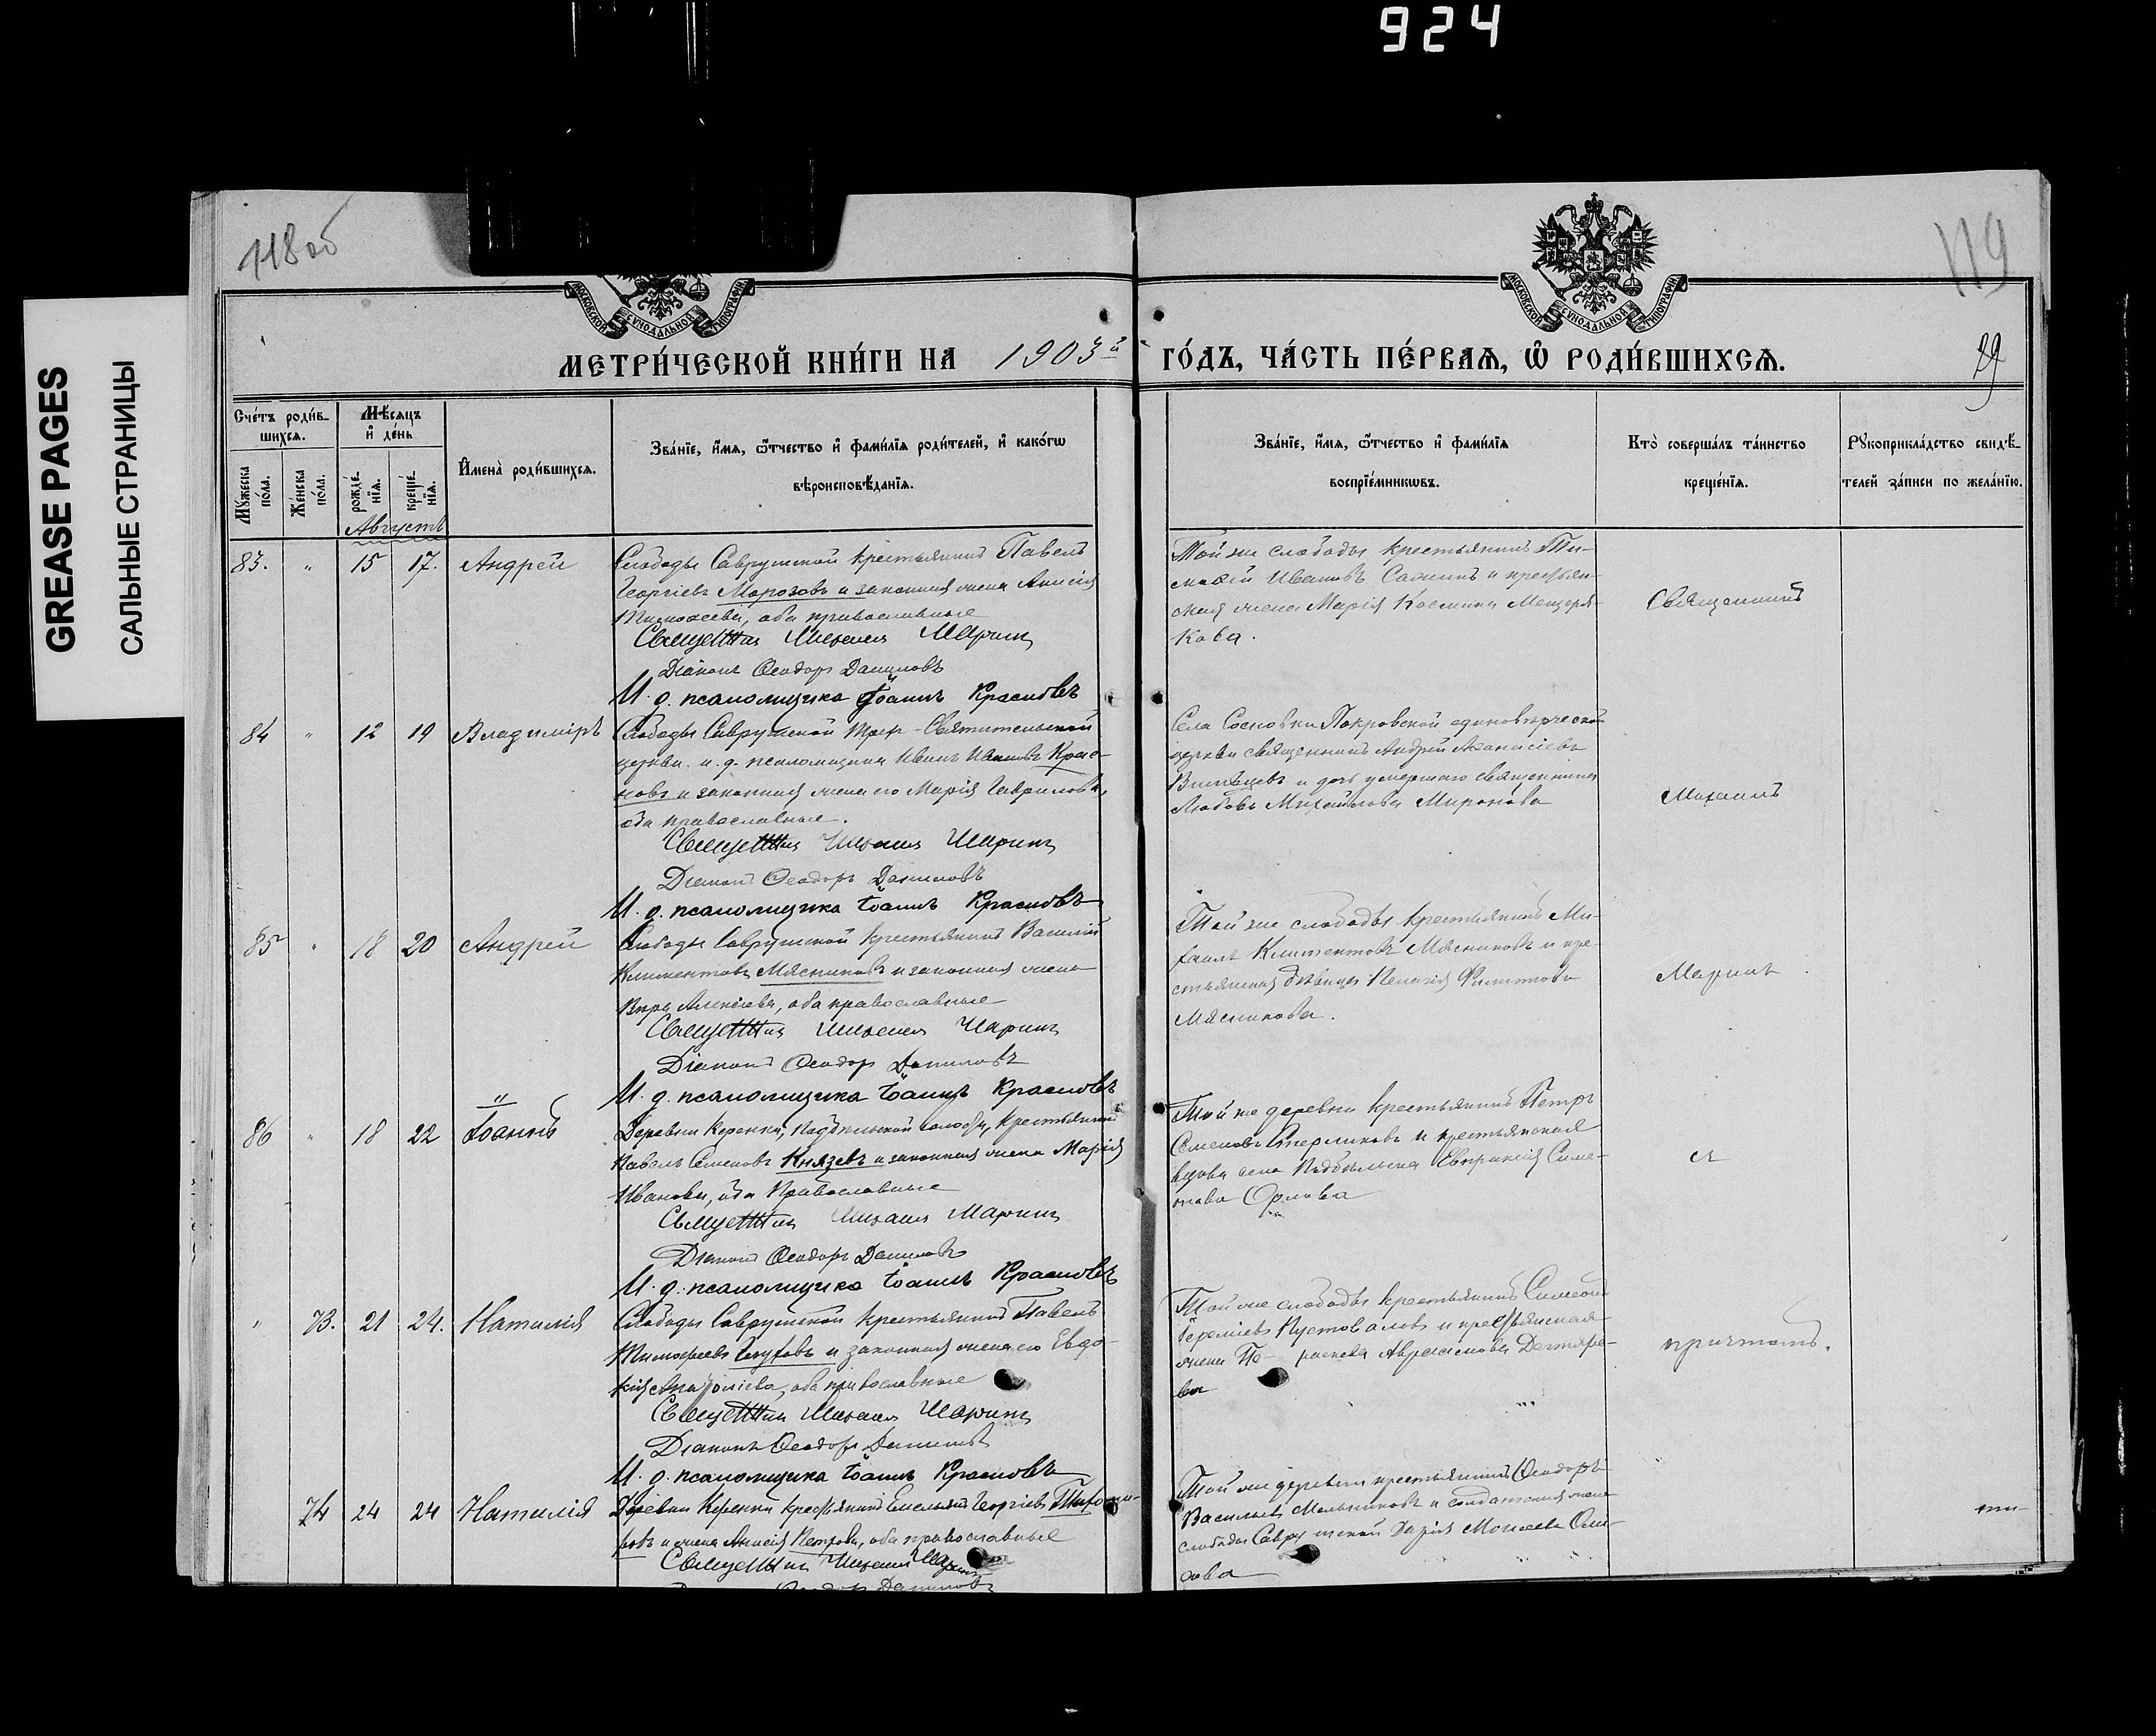 924
GREASE PAGES
САЛЬНЫЕ СТРАНИЦЫ
118 об
119
МОСКОВСКОЙ СѴНОДАЛЬНОЙ ТИПОГРАФІИ
МОСКОВСКОЙ СѴНОДАЛЬНОЙ ТИПОГРАФІИ
МЕТРИ́ЧЕСКОЙ КНИ́ГИ НА 1903й ГО́ДЪ, ЧА́СТЬ ПЕ́РВАѦ, Ѽ РОДИ́ВШИХСѦ.
29
Сче́тъ роди́в-
шихсѧ.
Мѣ́сѧцъ
и҆ де́нь
Мꙋ́жеска по́ла.
Же́нска по́ла.
рожде́-
нїѧ.
креще́-
нїѧ.
И҆мена̀ роди́вшихсѧ.
Зва́нїе, и҆́мѧ, ѻ҆́тчество и҆ фамѝлїѧ роди́телей, и҆ како́гѡ
вѣроисповѣ́данїѧ.
Зва́нїе, и҆́мѧ, ѻ҆́тчество и҆ фами́лїѧ
воспрїе́мникѡвъ.
Кто̀ соверша́лъ та́инство
креще́нїѧ.
Рꙋкоприкла́дство свидѣ́-
телей за́писи по жела́нїю.
Августъ
83. " 15 17. Андрей
Слободы Саврушской крестьянинъ Павелъ
Георгіевъ Морозовъ и законная жена Анисія
Тимофеева, оба православные
Священникъ Михаилъ Маринъ
Діаконъ Ѳеодоръ Даниловъ
И. д. псаломщика Іоаннъ Красновъ
Той же слободы крестьянинъ Ти-
моѳей Ивановъ Сажинъ и крестьян-
ская жена Марія Космина Мещеря-
кова.
Священникъ
84 " 12 19 Владиміръ
Слободы Саврушской Трех-Святительской
церкви и. д. псаломщика Иванъ Ивановъ Крас-
новъ и законная жена его Марія Гаврилова,
оба православные.
Священникъ Михаилъ Маринъ
Діаконъ Ѳеодоръ Даниловъ
И. д. псаломщика Іоаннъ Красновъ
Села Сосновки Покровской единовѣрческой
церкви священникъ Андрей Аѳанасіевъ
и дочь умершаго священника
Любовь Михайлова Миронова
Михаилъ
85 " 18 20 Андрей
Слободы Саврушской крестьянинъ Василій
Климентовъ Мясниковъ и законная жена
Вѣра Алексіева, оба православные
Священникъ Михаилъ Маринъ
Діаконъ Ѳеодоръ Даниловъ
И. д. псаломщика Іоаннъ Красновъ
Той же слободы крестьянинъ Ми-
хаилъ Климентовъ Мясниковъ и кре-
стьянская дѣвица Пелагія Филиппова
Мясникова.
Маринъ
86 " 18 22 Іоаннъ
Деревни Керенки, Подбѣльской волости, крестьянинъ
Павелъ Семеновъ Князевъ и законная жена Марія
Иванова, оба православные
Священникъ Михаилъ Маринъ
Діаконъ Ѳеодоръ Даниловъ
И. д. псаломщика Іоаннъ Красновъ
Той же деревни крестьянинъ Петръ
Семеновъ и крестьянская
вдова села Подбѣльска Евпраксія Симе-
онова Орлова
съ
" 73. 21 24. Наталія
Слободы Саврушской крестьянинъ Павелъ
Тимофеевъ и законная жена его Евдо-
кія, оба православные
Священникъ Михаилъ Маринъ
Діаконъ Ѳеодоръ Даниловъ
И. д. псаломщика Іоаннъ Красновъ
Той же слободы крестьянинъ Симеонъ
Іереміевъ Пустоваловъ и крестьянская
жена Па- раскева Авраамова Дегтяре-
ва
причтомъ.
74 24 24 Наталія
Деревни Керенки крестьянинъ Емельянъ Георгіевъ Тихоми-
ровъ и жена Анисія Петрова, оба православные
Священникъ Михаилъ Маринъ
Ѳеодоръ Даниловъ
Той же деревни крестьянинъ Ѳеодоръ
Васильевъ Мельниковъ и солдатская жена
слободы Саврушской Дарія Моисеева